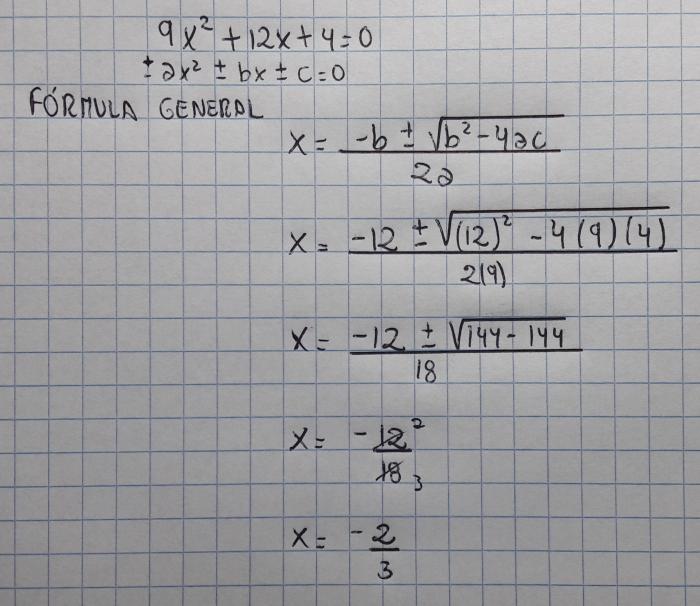 9x² + 12x + 4 = 0
± ax² ± bx ± c = 0
FÓRMULA GENERAL
x = -b ± √(b² - 4ac) / 2a
x = -12 ± √((12)² - 4(9)(4)) / 2(9)
x = -12 ± √(144 - 144) / 18
x = -12 2 / 18 3
x = -2 / 3